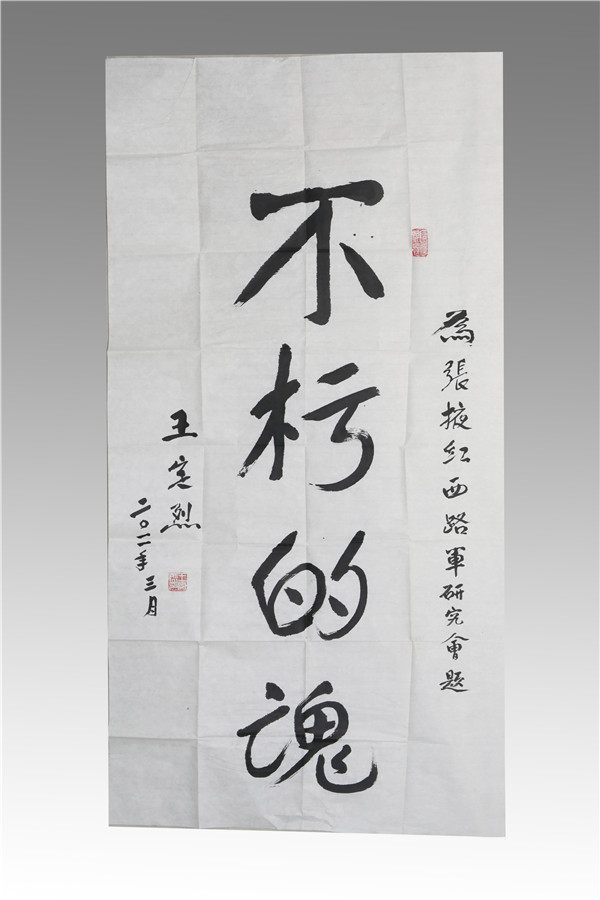 为張掖红西路軍研究會题
不朽的魂
王定烈
二〇一一年三月